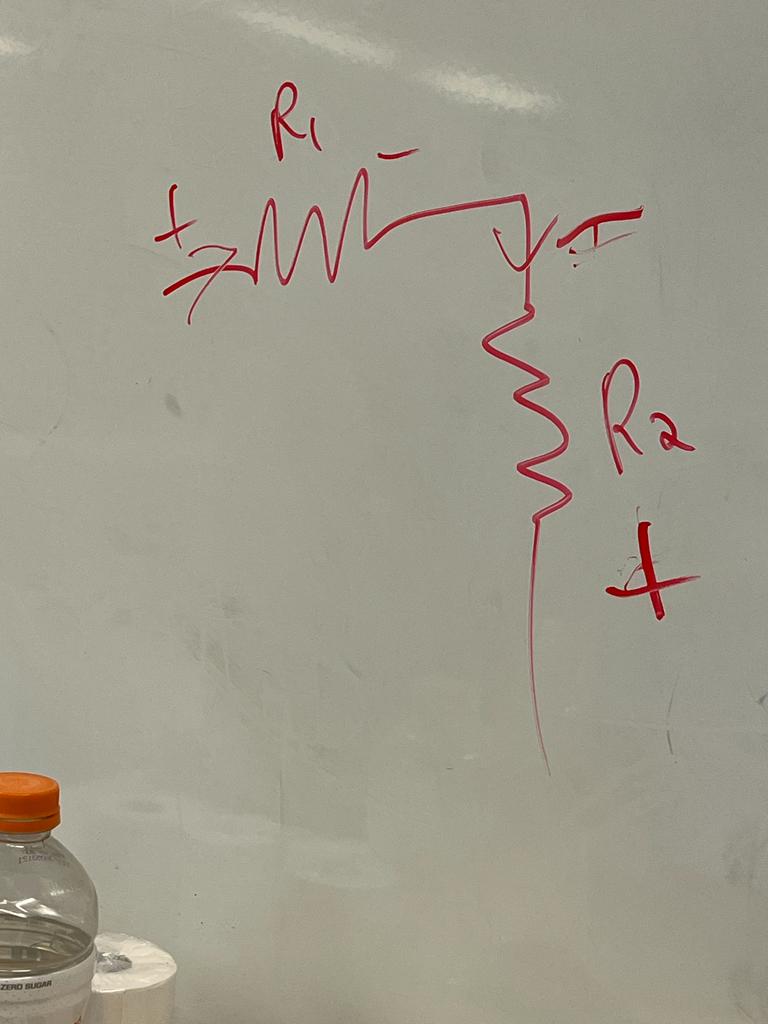 R1
-
+
I -
R2
+
ZERO SUGAR